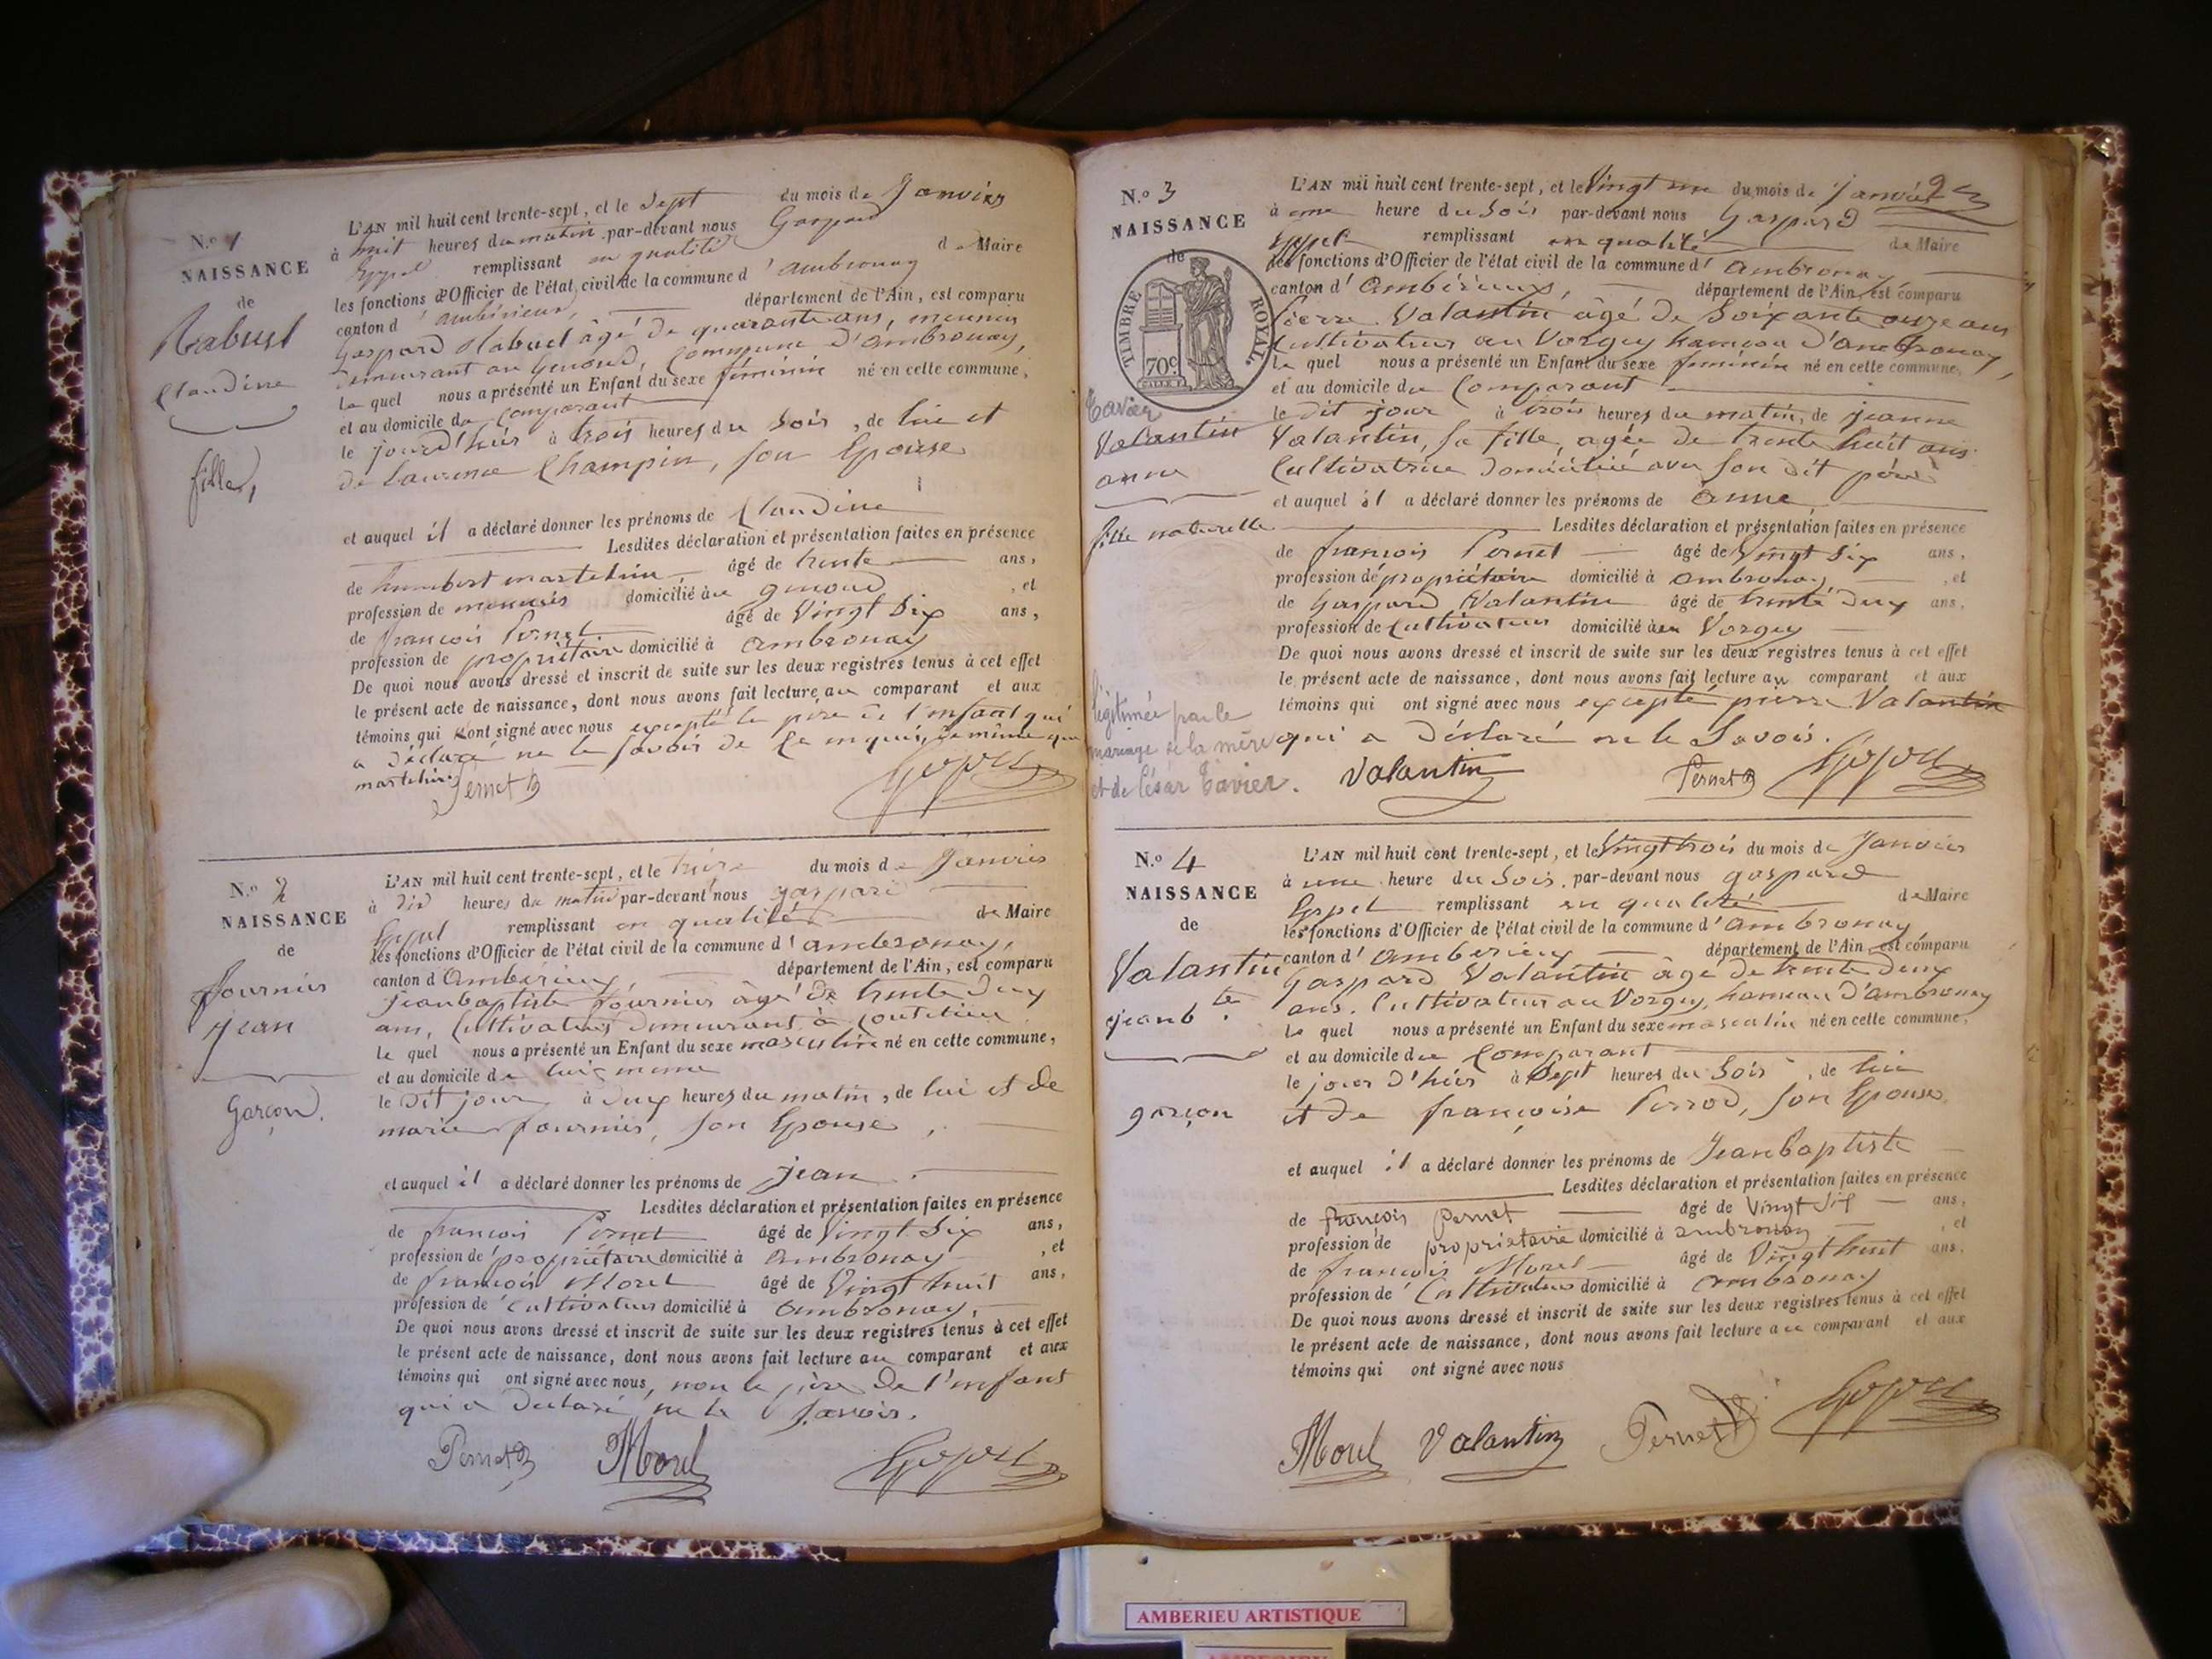 N.o 1
NAISSANCE
de
Rabuel
Claudine
fille,
L'AN mil huit cent trente-sept, et le Sept du mois de Janvier
à huit heures du matin par-devant nous Gaspard
Eppel remplissant en qualité de Maire
les fonctions d'Officier de l'état civil de la commune d'ambronay
canton d'ambérieux, département de l'Ain, est comparu
Gaspard Rabuel âgé de quarante ans, meunier
demeurant au Genoud, Commune d'ambronay,
le quel nous a présenté un Enfant du sexe féminin né en cette commune,
et au domicile du Comparant
le jour d'hier à trois heures du soir, de lui et
de Laurence Champin, son Epouse
et auquel il a déclaré donner les prénoms de Claudine
Lesdites déclaration et présentation faites en présence
de humbert martelin âgé de trente ans,
profession de meunier domicilié au genoud, et
de françois Pernet âgé de Vingt Six ans,
profession de propriétaire domicilié à ambronay
De quoi nous avons dressé et inscrit de suite sur les deux registres tenus à cet effet
le présent acte de naissance, dont nous avons fait lecture au comparant et aux
témoins qui ont signé avec nous excepté le père de l'enfant qui
a déclaré ne le savoir de ce enquis, de même que
martelin
Pernet
N.o 2
NAISSANCE
de
fournier
jean
Garçon.
L'AN mil huit cent trente-sept, et le treize du mois de Janvier
à dix heures du matin par-devant nous gaspard
Eppel remplissant en qualité de Maire
les fonctions d'Officier de l'état civil de la commune d'ambronay,
canton d'Amberieux département de l'Ain, est comparu
jean baptiste fournier âgé de trente deux
ans, Cultivateur demeurant à
le quel nous a présenté un Enfant du sexe masculin né en cette commune,
et au domicile de lui même
le dit jour à deux heures du matin, de lui et de
marie fournier, son Epouse,
et auquel il a déclaré donner les prénoms de jean.
Lesdites déclaration et présentation faites en présence
de françois Pernet âgé de Vingt Six ans,
profession de propriétaire domicilié à ambronay, et
de françois Morel âgé de Vingt huit ans,
profession de Cultivateur domicilié à ambronay,
De quoi nous avons dressé et inscrit de suite sur les deux registres tenus à cet effet
le présent acte de naissance, dont nous avons fait lecture au comparant et aux
témoins qui ont signé avec nous, non le père de l'enfant
qui a déclaré ne le savoir.
Pernet Morel Eppel
N.o 3
NAISSANCE
de
TIMBRE ROYAL
70c
Tavier
Valantin
anne
fille naturelle
légitimée par le
mariage de la mère
et de César Tavier.
L'AN mil huit cent trente-sept, et le Vingt un du mois de Janvier 2
à une heure du Soir par-devant nous Gaspard
Eppel remplissant en qualité de Maire
les fonctions d'Officier de l'état civil de la commune d'Ambronay
canton d'Ambérieux, département de l'Ain, est comparu
Pierre Valantin âgé de Soixante onze ans
Cultivateur au Vorgey hameau d'ambronay,
le quel nous a présenté un Enfant du sexe féminin né en cette commune,
et au domicile du Comparant
le dit jour à trois heures du matin, de jeanne
Valantin, sa fille, agée de trente huit ans
Cultivatrice domiciliée avec son dit père
et auquel il a déclaré donner les prénoms de Anne
Lesdites déclaration et présentation faites en présence
de françois Pernet âgé de Vingt Six ans,
profession de propriétaire domicilié à ambronay, et
de Gaspard Valantin âgé de trente deux ans,
profession de Cultivateur domicilié au Vorgey
De quoi nous avons dressé et inscrit de suite sur les deux registres tenus à cet effet
le présent acte de naissance, dont nous avons fait lecture au comparant et aux
témoins qui ont signé avec nous excepté pierre Valantin
qui a déclaré ne le Savoir.
Valantin Pernet Eppel
N.o 4
NAISSANCE
de
Valantin
jean b.te
garçon
L'AN mil huit cent trente-sept, et le Vingt trois du mois de Janvier
à une heure du Soir, par-devant nous gaspard
Eppel remplissant en qualité de Maire
les fonctions d'Officier de l'état civil de la commune d'Ambronay
canton d'Amberieux département de l'Ain est comparu
Gaspard Valantin âgé de trente deux
ans, Cultivateur au Vorgey, hameau d'ambronay
le quel nous a présenté un Enfant du sexe masculin né en cette commune,
et au domicile du Comparant
le jour d'hier à Sept heures du Soir, de lui
et de françoise Perrod, son Epouse
et auquel il a déclaré donner les prénoms de Jean baptiste
Lesdites déclaration et présentation faites en présence
de françois Pernet âgé de Vingt Six ans,
profession de propriétaire domicilié à ambronay, et
de françois Morel âgé de Vingt huit ans,
profession de Cultivateur domicilié à ambronay
De quoi nous avons dressé et inscrit de suite sur les deux registres tenus à cet effet
le présent acte de naissance, dont nous avons fait lecture au comparant et aux
témoins qui ont signé avec nous
Morel Valantin Pernet Eppel
AMBERIEU ARTISTIQUE